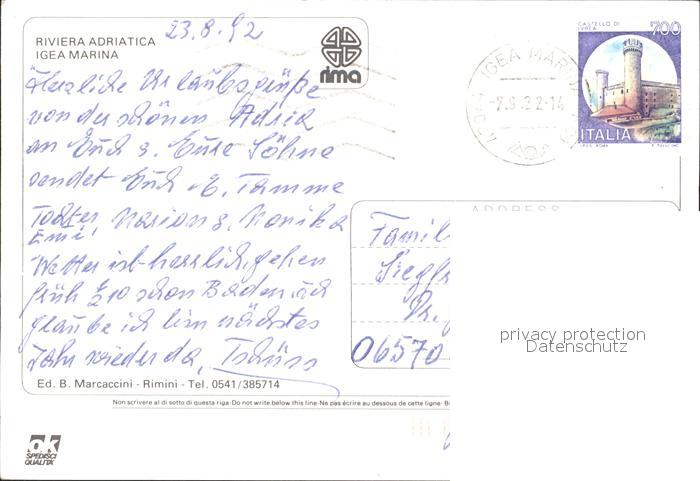 RIVIERA ADRIATICA
IGEA MARINA
23.8.92
rima
Herzliche Urlaubsgrüße
von der schönen Adria
an Euch u. Eure Söhne
sendet Euch E. Tamme
Tochter, Marion u. Monika
Emi,
Wetter ist herrlich, gehen
früh ½10 schon Baden, ich
glaube ich bin nächstes
Jahr wieder da, Tschüss
Ed. B. Marcaccini - Rimini - Tel. 0541/385714
CASTELLO DI
IVREA
700
ITALIA
IGEA MARINA
-7.9.92-14
ADDRESS
Famil
Siegfr
Dr.
06570
privacy protection
Datenschutz
Non scrivere al di sotto di questa riga-Do not write below this line-Ne pas écrire au dessous de cette ligne-B
ok
SPEDISCI
QUALITÀ